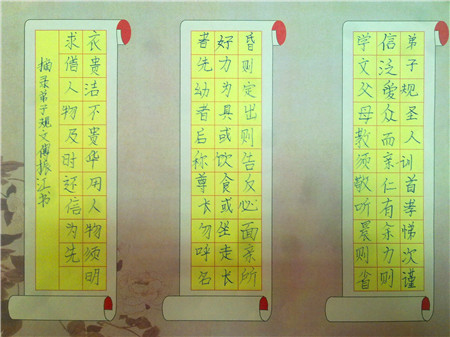 弟子规圣人训首孝悌次谨
信泛愛众而亲仁有余力则
学文父母教须敬听晨则省
昏则定出则告反必面亲所
好力为具或饮食或坐走长
者先幼者后称尊长勿呼名
衣贵洁不贵华用人物须明
求借人物及时还信为先
摘录弟子规文傅振江书